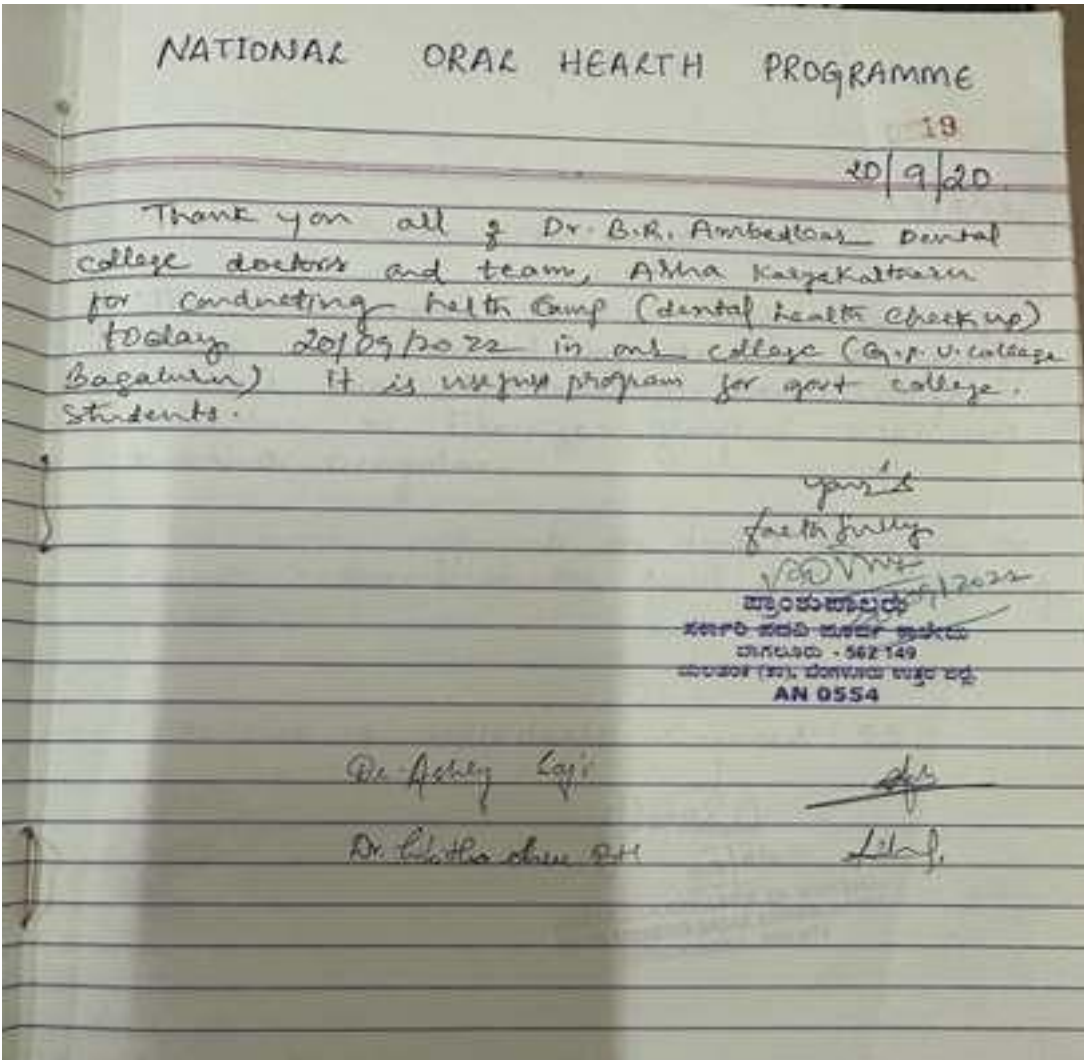 NATIONAL ORAL HEALTH PROGRAMME
19
20/9/20
Thank you all of Dr. B.R. Ambedkar Dental
college doctors and team, Asha
for conducting helth camp (dental health check up)
today 20/09/2022 in our college (G.P.U. college
Bagaluru) It is usefull program for govt college.
students.
your's
faethfully
/09/2022
ಪ್ರಾಂಶುಪಾಲರು
ಸರ್ಕಾರಿ ಪದವಿ ಪೂರ್ವ ಕಾಲೇಜು
ಬಾಗಲೂರು - 562 149
ಯಲಹಂಕ (ತಾ), ಬೆಂಗಳೂರು ಉತ್ತರ ಜಿಲ್ಲೆ.
AN 0554
Dr. Ashly
Dr.